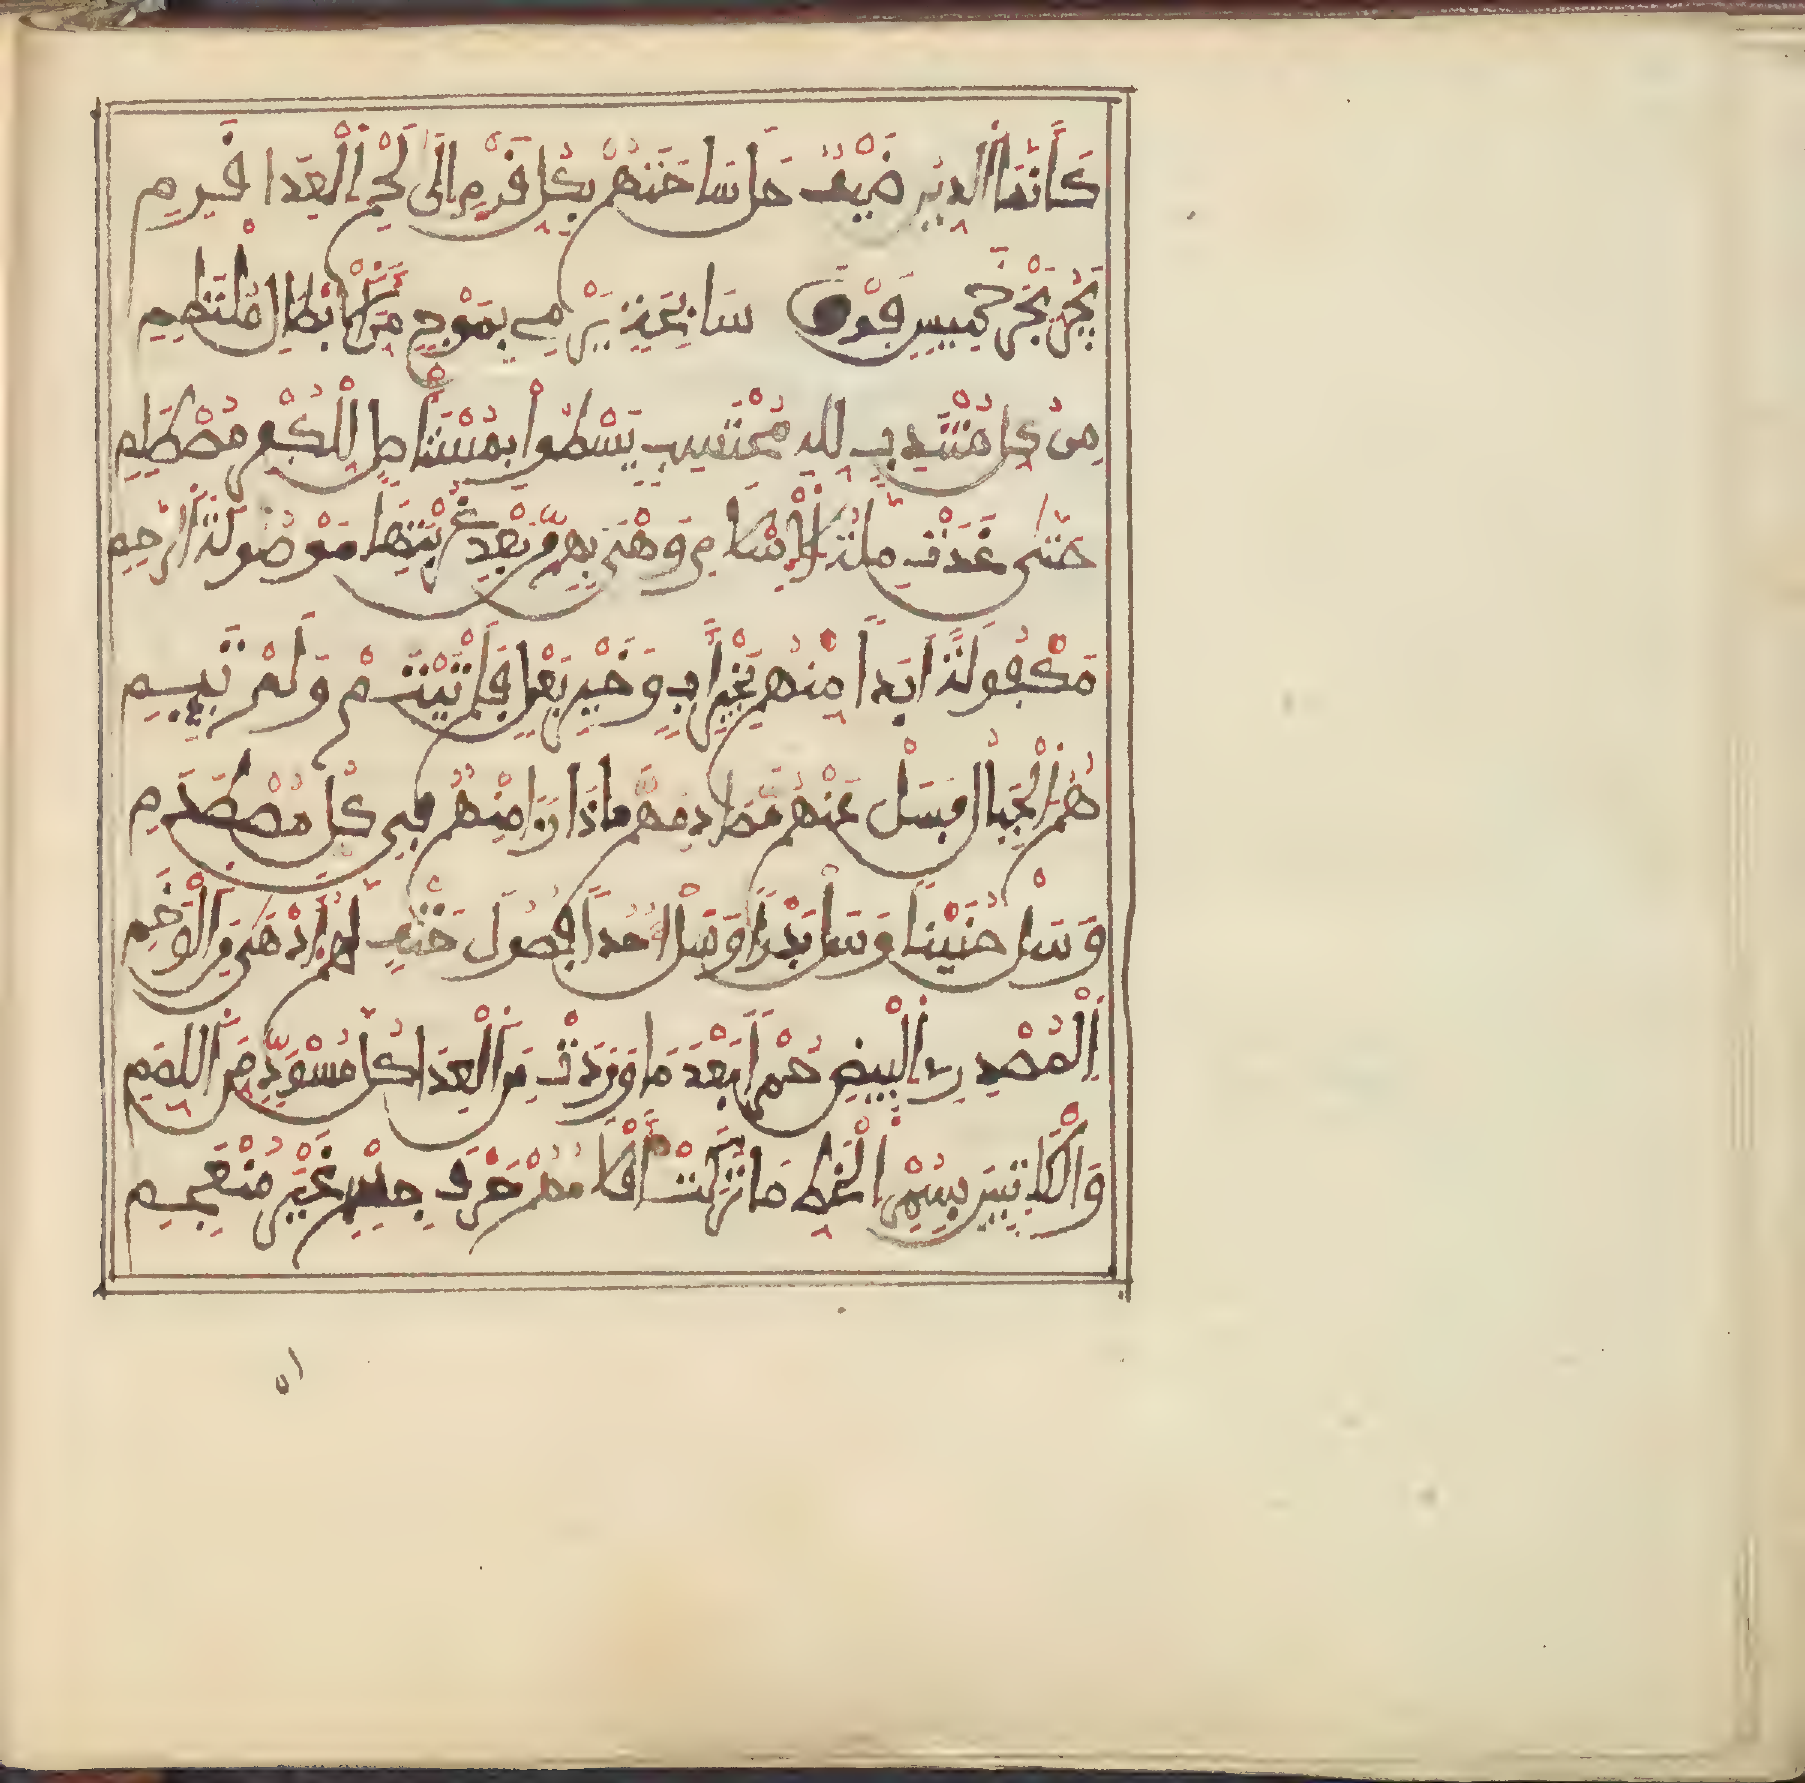 كَأَنَّمَا الدِّينُ ضَيْفٌ حَلَّ سَاحَتَهُمْ بِكُلِّ قَرْمٍ إِلَى لَحْمِ الْعِدَا قَرِمِ
يَجُرُّ بَحْرَ خَمِيسٍ فَوْقَ سَابِحَةٍ يَرْمِي بِمَوْجٍ مِنَ الْأَبْطَالِ مُلْتَطِمِ
مِنْ كُلِّ مُنْتَدِبٍ لِلَّهِ مُحْتَسِبٍ يَسْطُوا بِمُسْتَأْصِلٍ لِلْكُفْرِ مُصْطَلِمِ
حَتَّى غَدَتْ مِلَّةُ الْإِسْلَامِ وَهْيَ بِهِمْ مِنْ بَعْدِ غُرْبَتِهَا مَوْصُولَةَ الرَّحِمِ
مَكْفُولَةً أَبَدًا مِنْهُمْ بِخَيْرِ أَبٍ وَخَيْرِ بَعْلٍ فَلَمْ تَيْتَمْ وَلَمْ تَئِمِ
هُمُ الْجِبَالُ فَسَلْ عَنْهُمْ مُصَادِمَهُمْ مَاذَا رَأَى مِنْهُمْ فِي كُلِّ مُصْطَدَمِ
وَسَلْ حُنَيْنًا وَسَلْ بَدْرًا وَسَلْ أُحُدًا فُصُولَ حَتْفٍ لَهُمْ أَدْهَى مِنَ الْوَخَمِ
الْمُصْدِرِي الْبِيضِ حُمْرًا بَعْدَ مَا وَرَدَتْ مِنَ الْعِدَا كُلَّ مُسْوَدٍّ مِنَ اللِّمَمِ
وَالْكَاتِبِينَ بِسُمْرِ الْخَطِّ مَا تَرَكَتْ أَقْلَامُهُمْ حَرْفَ جِسْمٍ غَيْرَ مُنْعَجِمِ